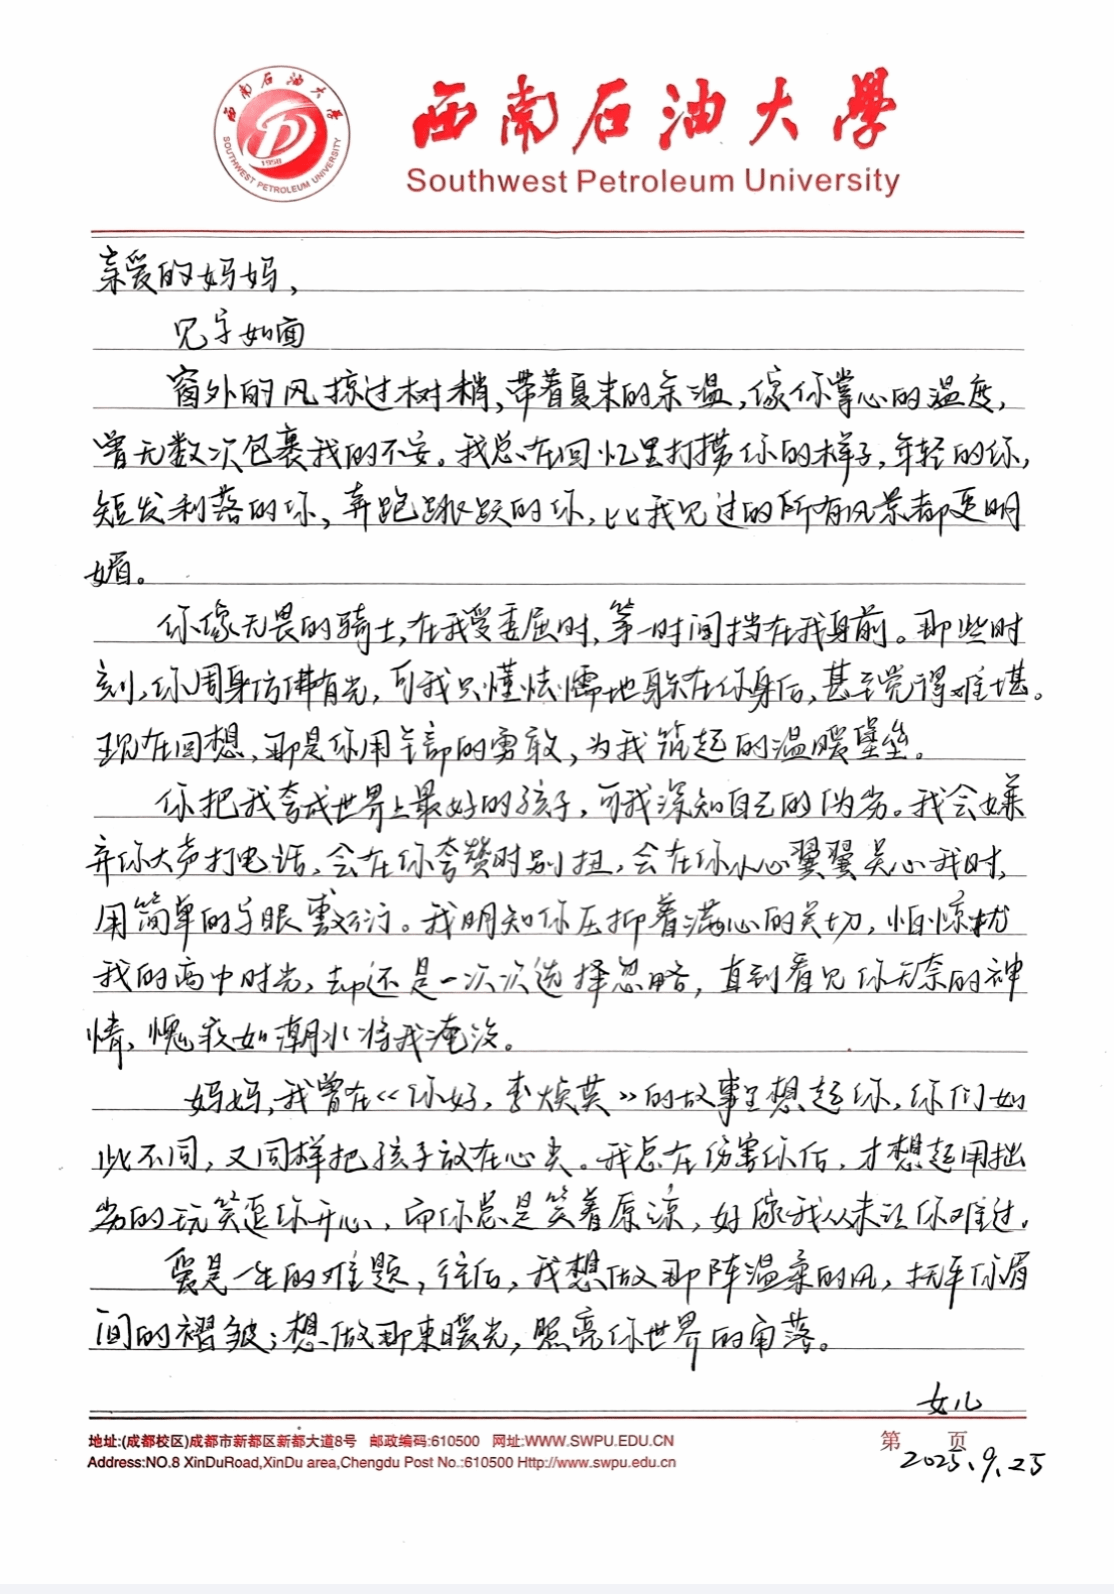 西南石油大学
SOUTHWEST PETROLEUM UNIVERSITY
1958
西南石油大學
Southwest Petroleum University
亲爱的妈妈，
见字如面
窗外的风掠过树梢，带着夏末的余温，像你掌心的温度，
曾无数次包裹我的不安。我总在回忆里打捞你的样子，年轻的你，
短发利落的你，奔跑跳跃的你，比我见过的所有风景都更明
媚。
你像无畏的骑士，在我受委屈时，第一时间挡在我身前。那些时
刻，你周身仿佛有光，可我只懂怯懦地躲在你身后，甚至觉得难堪。
现在回想，那是你用全部的勇敢，为我筑起的温暖堡垒。
你把我夸成世界上最好的孩子，可我深知自己的伪劣。我会嫌
弃你大声打电话，会在你夸赞时别扭，会在你小心翼翼关心我时，
用简单的字眼敷衍。我明知你压抑着满心的关切，怕惊扰
我的高中时光，却还是一次次选择忽略，直到看见你无奈的神
情，愧疚如潮水将我淹没。
妈妈，我曾在《你好，李焕英》的故事里想起你，你们如
此不同，又同样把孩子放在心尖。我总在伤害你后，才想起用拙
劣的玩笑逗你开心，而你总是笑着原谅，好像我从未让你难过。
爱是一生的难题，往后，我想做那阵温柔的风，抚平你眉
间的褶皱；想做那束暖光，照亮你世界的角落。
女儿
地址:(成都校区)成都市新都区新都大道8号 邮政编码:610500 网址:WWW.SWPU.EDU.CN
第 页
Address:NO.8 XinDuRoad,XinDu area,Chengdu Post No.:610500 Http://www.swpu.edu.cn
2025.9.25